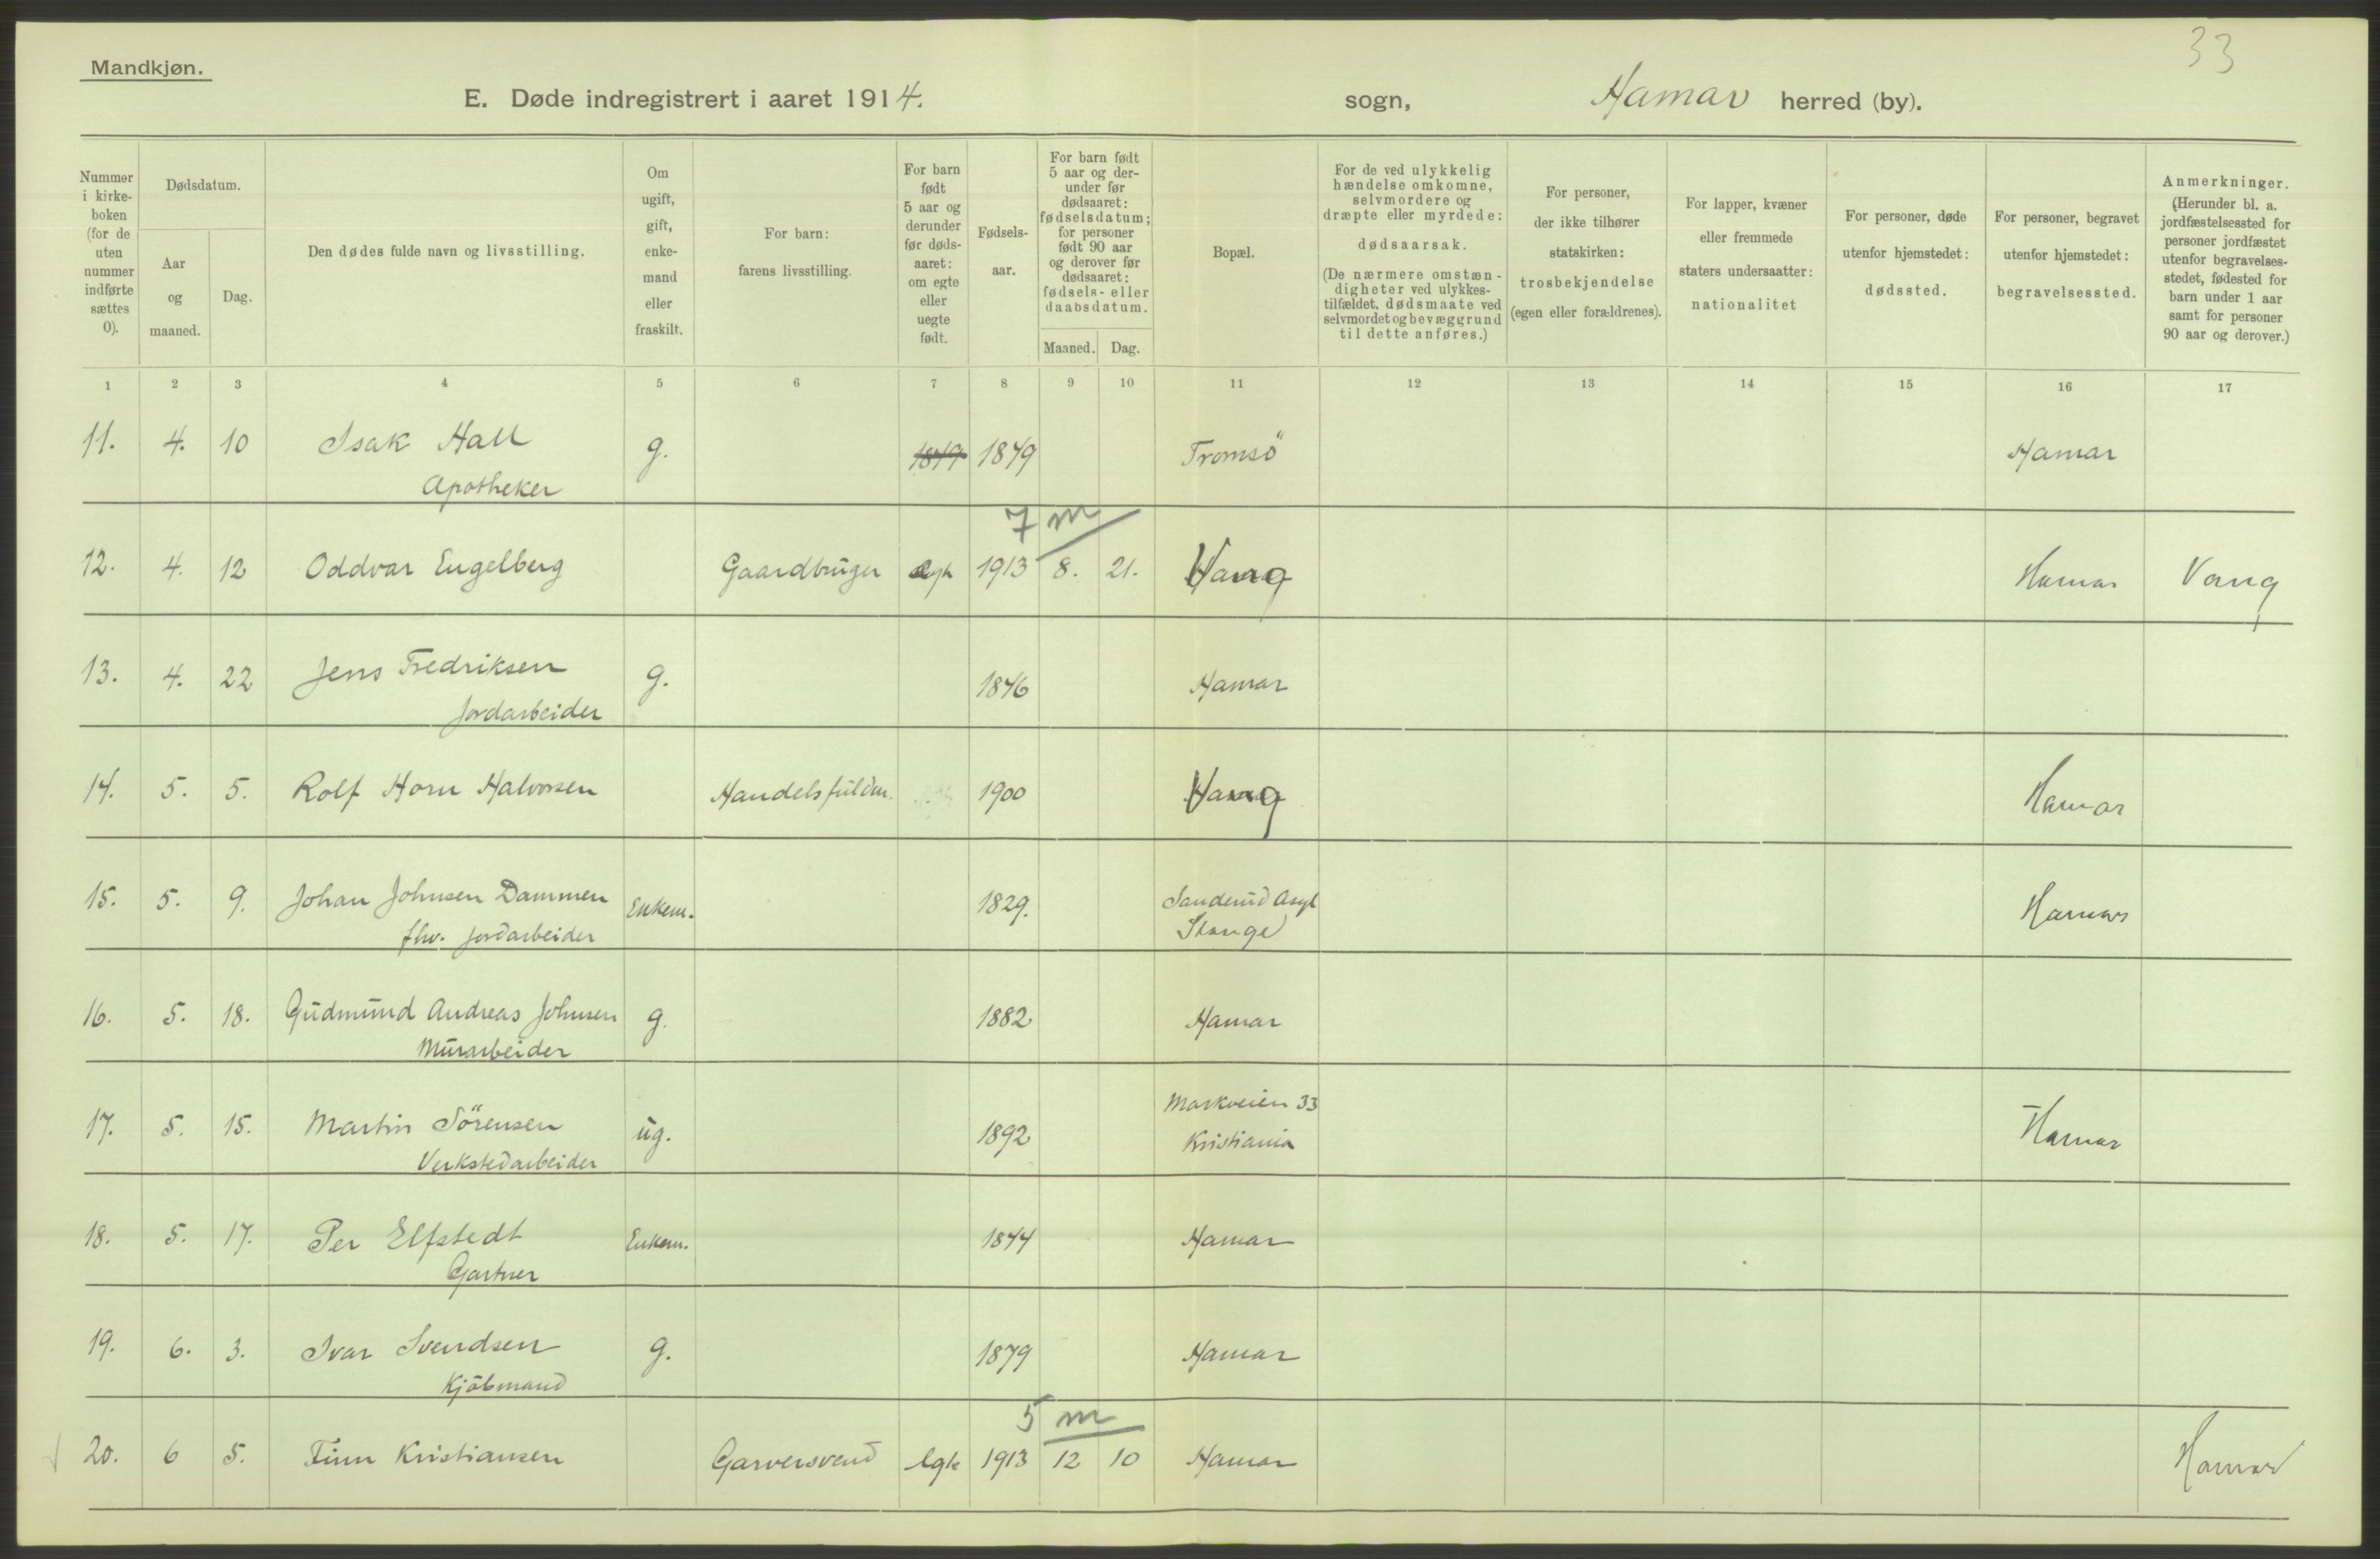 33
Mandkjøn.
E. Døde indregistrert i aaret 1914. sogn, Hamar herred (by).
Nummer i kirke-boken (for de uten nummer indførte sættes 0).
Dødsdatum.
Aar og maaned.
Dag.
Den dødes fulde navn og livsstilling.
Om ugift, gift, enke-mand eller fraskilt.
For barn: farens livsstilling.
For barn født 5 aar og derunder før døds-aaret: om egte eller uegte født.
Fødsels-aar.
For barn født 5 aar og der-under før dødsaaret: fødselsdatum; for personer født 90 aar og derover før dødsaaret: fødsels- eller daabsdatum.
Maaned. Dag.
Bopæl.
For de ved ulykkelig hændelse omkomne, selvmordere og dræpte eller myrdede: dødsaarsak. (De nærmere omstæn-digheter ved ulykkes-tilfældet, dødsmaate ved selvmordet og bevæggrund til dette anføres.)
For personer, der ikke tilhører statskirken: trosbekjendelse (egen eller forældrenes).
For lapper, kvæner eller fremmede staters undersaatter: nationalitet
For personer, døde utenfor hjemstedet: dødssted.
For personer, begravet utenfor hjemstedet: begravelsessted.
Anmerkninger. (Herunder bl. a. jordfæstelsessted for personer jordfæstet utenfor begravelses-stedet, fødested for barn under 1 aar samt for personer 90 aar og derover.)
1 2 3 4 5 6 7 8 9 10 11 12 13 14 15 16 17
11. 4. 10 Isak Hall g. 1849 1849 Tromsö Hamar
Apotheker
7 m
12. 4. 12 Oddvar Engelberg Gaardbruger Egte 1913 8. 21. Vang Hamar Vang
13. 4. 22 Jens Fredriksen g. 1846 Hamar
Jordarbeider
14. 5. 5. Rolf Horn Halvorsen Handelsfuldm. 1900 Vang Hamar
15. 5. 9. Johan Johnsen Dammen Enkem. 1829. Sanderud Asyl
fhv. jordarbeider Stange Hamar
16. 5. 18. Gudmund Andreas Johnsen g. 1882 Hamar
Murarbeider
17. 5. 15. Martin Sörensen ug. 1892 Markveien 33
Verkstedarbeider Kristiania Hamar
18. 5. 17. Per Elfstedt Enkem. 1844 Hamar
Gartner
19. 6. 3. Ivar Svendsen g. 1879 Hamar
Kjöbmand
5 m
20. 6 5. Finn Kristiansen Garversvend Egte 1913 12 10 Hamar Hamar